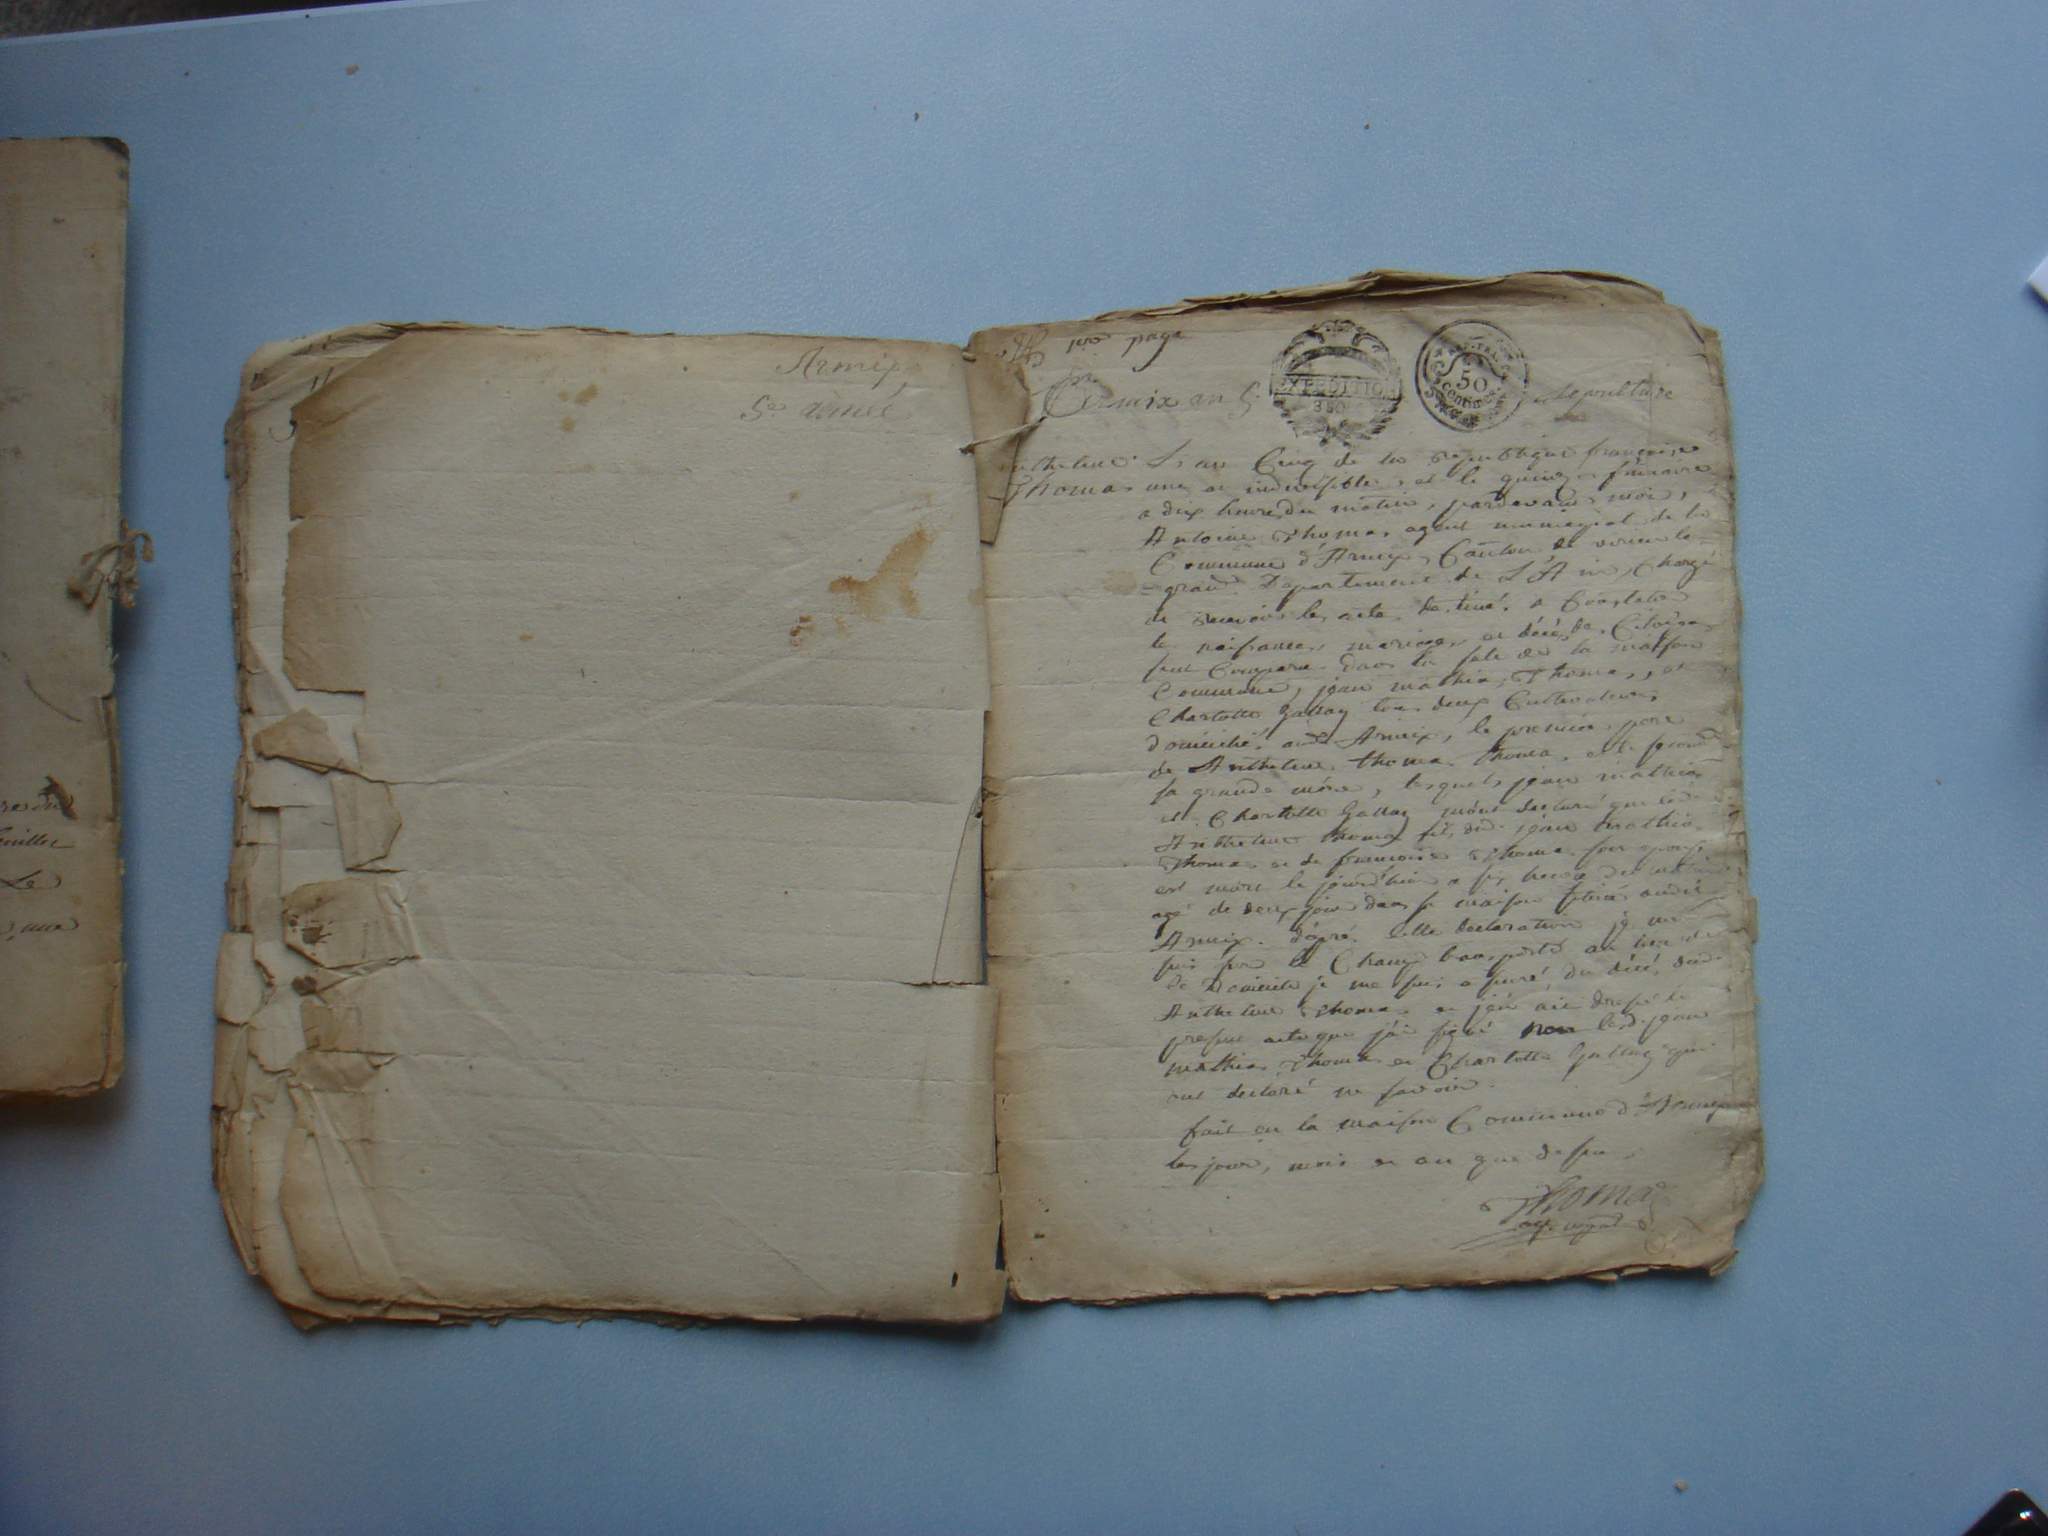 re du
feuillet
Le
une
Armix
5e année
1ere page
Armix an 5.
EXPEDITION
50
centimes
Sepulture
Anthelme
Thomas
L'an Cinq de la republique françoise
une et indivisible, et le quinze frimaire
a dix heures du matin, pardevant moi,
Antoine Thomas agent municipal de la
Commune d'Armix, Canton de virieu le=
=grand Departement de L'Ain, Chargé
de recevoir les actes destinés a Constater
les naissances, mariages, et décés des Citoÿens
sont Comparu dans la sale de la maison
Commune, jean mathias Thomas, et
Charlotte Gallay tous deux Cultivateurs
domicilié audt Armix, le premier pere
de Anthelme thomas thomas, et la seconde
sa grande mére, lesquels jean mathias
et Charlotte Gallay m'ont declaré que led.
Anthelme thomas fils dud. jean mathias
Thomas et de francoise Thomas son epouse,
est mort le jourd'hui a six heures du matin
agé de deux jour dans sa maison située audit
Armix. d'aprés cette declaration je me
suis sur le Champ transporté au lieu de
ce Domicile je me suis assuré du décés dud.
Anthelme Thomas et j'en ait dressé le
present acte que j'ai signé non lesd. jean
mathias Thomas et Charlotte Gallay qui
ont declaré ne savoir.
fait en la maison Commune d'Armix
les jour, mois et an que dessus.
Thomas